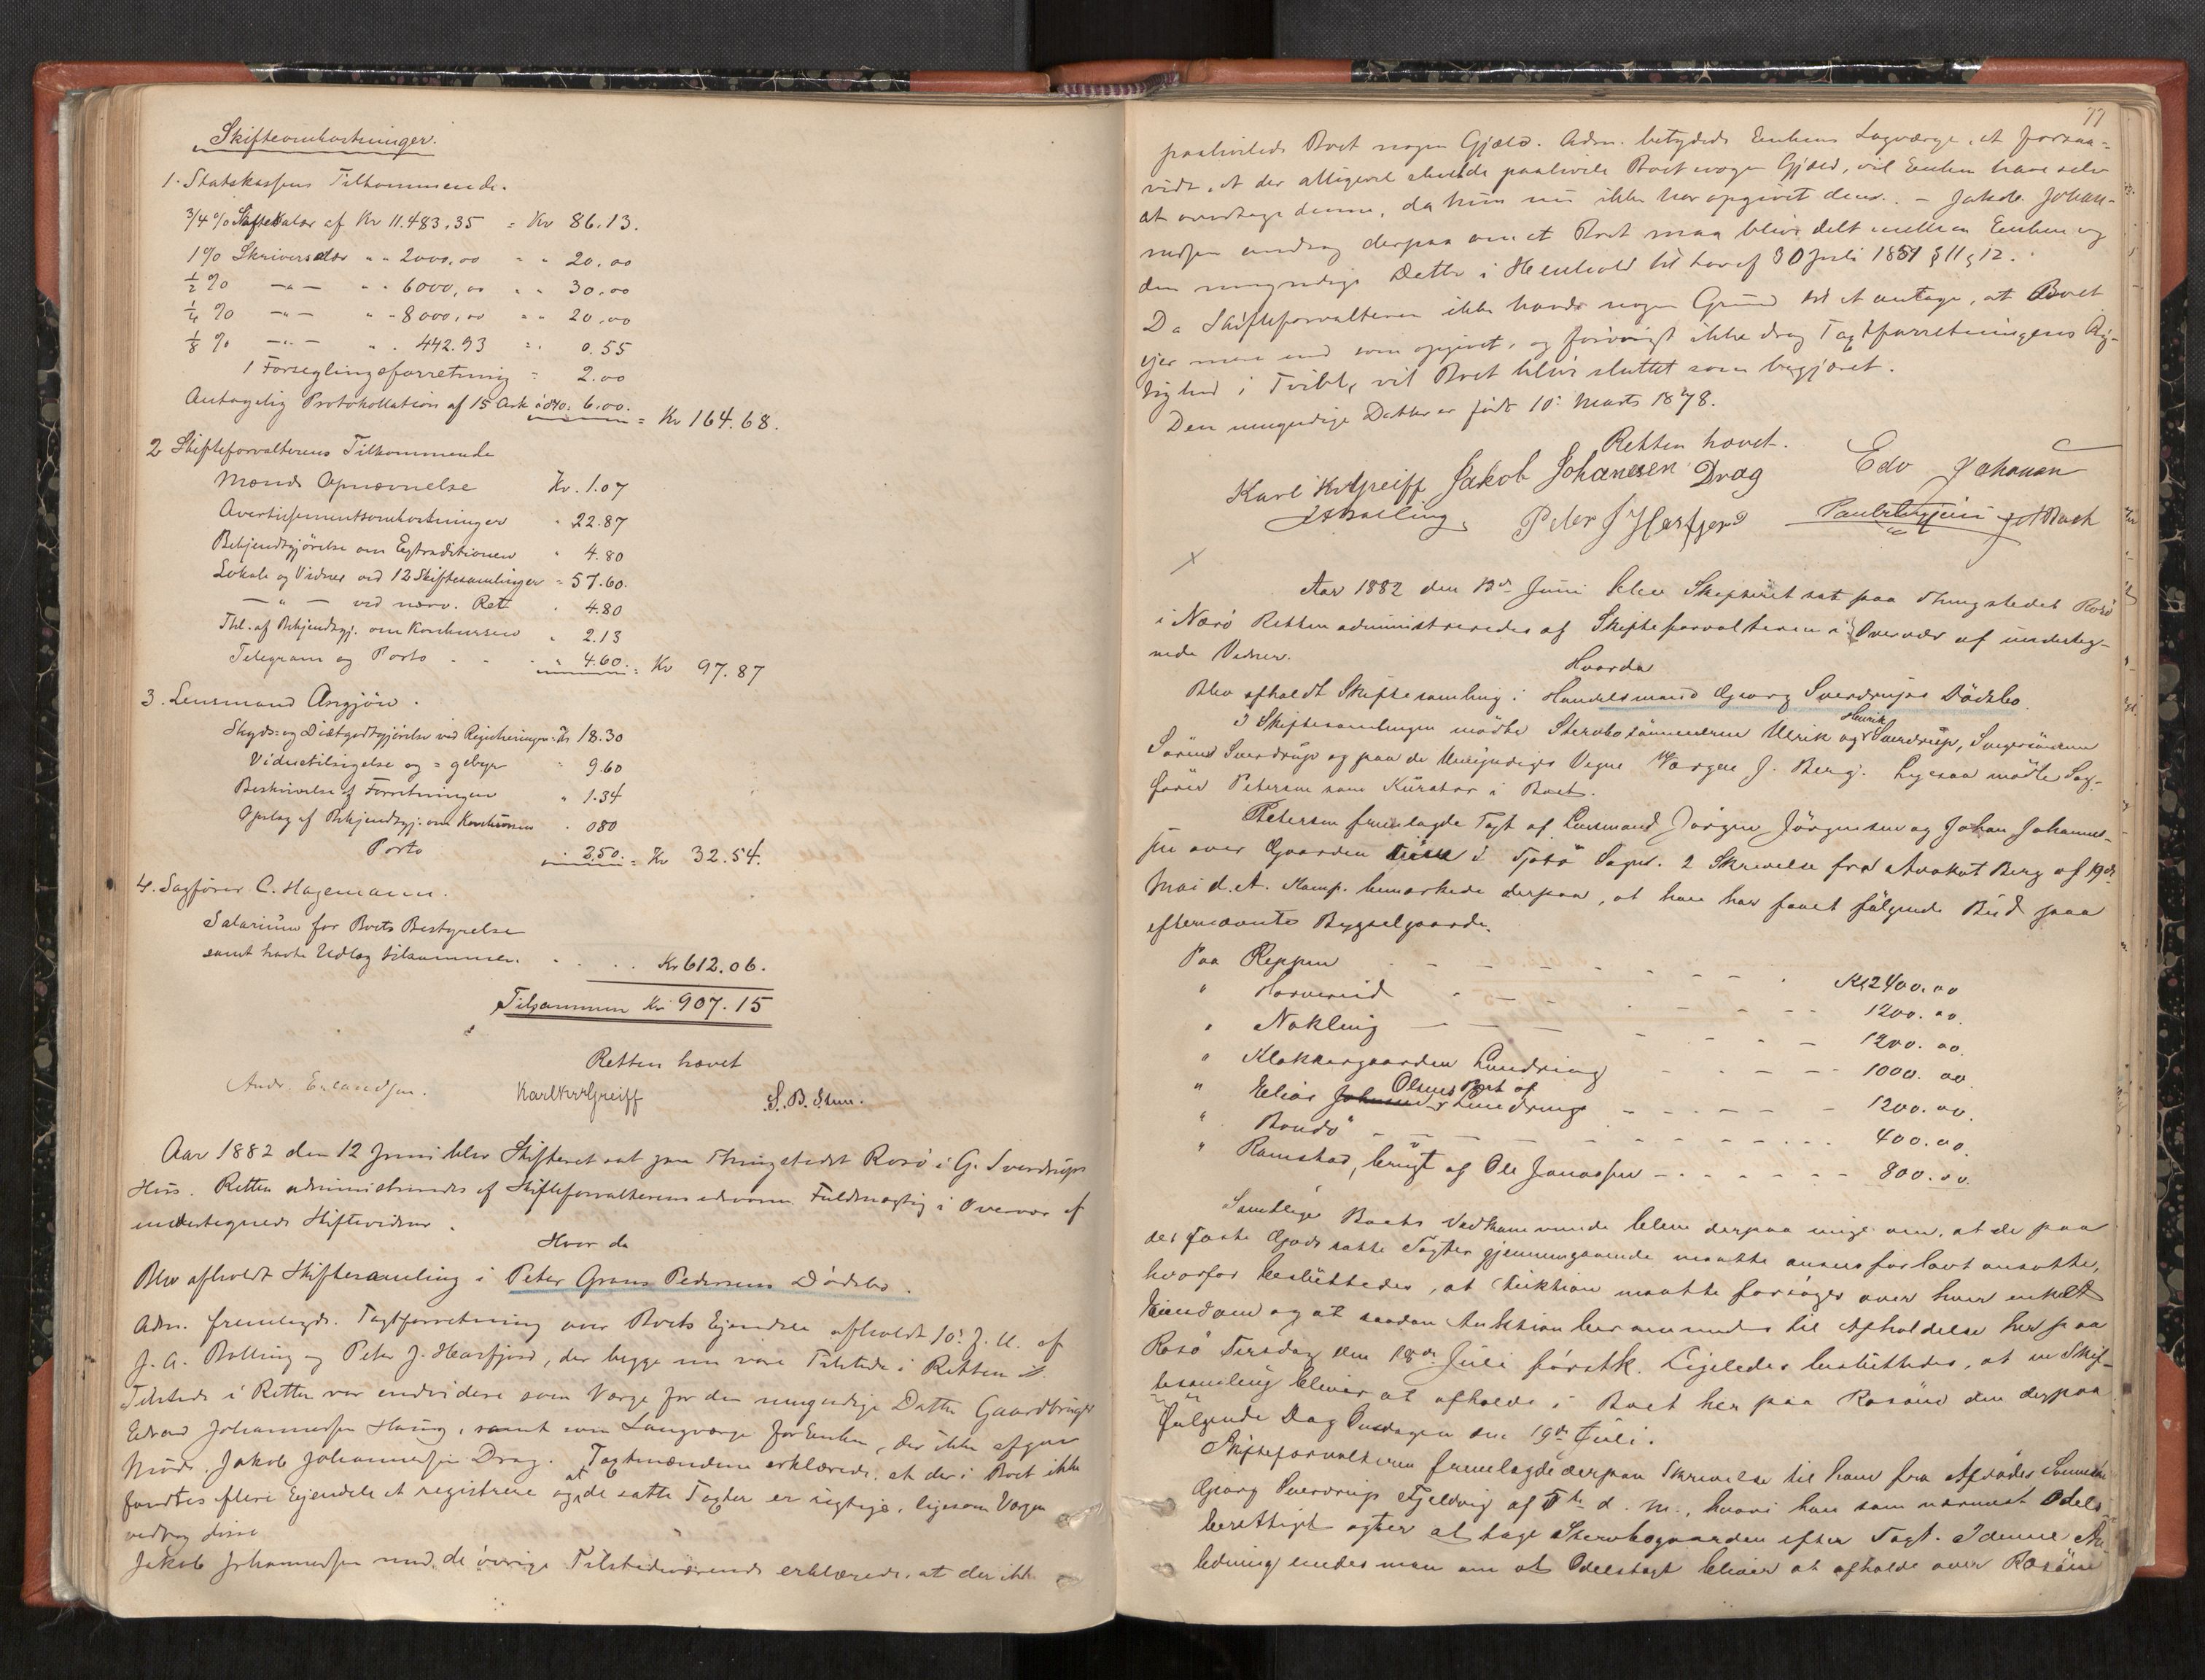 Skifteomkostninger.
1. Statskassens Tilkommende.
3/4 % Skiftesalær af Kr 11.483,35 = Kr 86.13.
1 % Skriversalær " " 2000,00 " " 20.00
1/2 % —"— " " 6000,00 " " 30.00
1/4 % —"— " " 8000,00 " " 20.00
1/8 % —"— " " 442.93 " " 0.55
1 Forseglingsforretning = 2.00
Antagelig Protokollation af 15 Ark à 0,40: 6.00. = Kr 164.68.
2 Skifteforvalterens Tilkommende
Mænds Opnævnelse Kr. 1.07
Avertissementsomkostninger " 22.87
Bekjendtgjörelse om Extraditionen " 4.80
Lokale og Vidner ved 12 Skiftesamlinger " 57.60.
— " — ved nærv. Ret " 4.80
Thl. af Bekjendtgj. om Konkursen " 2.13
Telegram og Porto " 4.60. = Kr 97.87
3. Lensmand Asgjörn.
Skyds- og Diætgodtgjörelse ved Registreringen Kr 18.30
Vidnetilsigelse og = gebyr " 9.60
Beskrivelse af Forretningen " 1.34
Opslag af Bekjendtgj. om Konkursen " 080
Porto " 2.50. = Kr 32.54.
4. Sagförer C. Hagemann.
Salarium for Boets Bestyrelse
samt havte Udlæg tilsammen. . . . Kr 612.06.
Tilsammen Kr 907.15
Retten hævet
Andr. Erlandsen. Karl Kr Greiff S. B. Steen.
Aar 1882 den 12 Juni blev Skifteret sat paa Thingstedet Rosö i G. Sverdrups
Hus. Retten administreredes af Skifteforvalterens edsvorne Fuldmægtig i Overvær af
undertegnede Skiftevidner.
Hvor da
Blev afholdt Skiftesamling i Peter Grans Pedersens Dödsbo.
Adm. fremlagde Taxtforretning over Boets Ejendele afholdt 10. f. M. af
J. A. Bolling og Peter J. Hærfjord, der begge nu vare Tilstede i Retten
Tilstede i Retten var endvidere som Værge for den umyndige Datter Gaardbruger
Edvard Johannessen Haug, samt som Laugværge for Enken, der ikke afgav
Möde, Jakob Johannessen Drag. Taxtmændene erklærede at der i Boet ikke
fandtes flere Ejendele at registrere og at de satte Taxter er rigtige, ligesom Værgen
vedtog disse
Jakob Johannessen med de övrige Tilstedeværende erklærede, at der ikke
77
paahvilede Boet nogen Gjæld. Adm. betydede Enkens Lagværge, at forsaa-
vidt, at der alligevel skulde paahvile Boet nogen Gjæld, vil Enken have selv
at overtage denne, da hun nu ikke har opgivet dem. – Jakob Johan-
nessen androg derpaa om at Boet maa blive delt mellem Enken og
den umyndige Datter i Henhold til Lov af 30 Juli 1851 § 11 & 12.
Da Skifteforvalteren ikke havde nogen Grund til at antage, at Boet
ejer mere end som opgivet, og forövrigt ikke drog Taxtforretningens Rig-
tighed i Tvibl, vil Boet blive sluttet som begjæret.
Den umyndige Datter er födt 10. Marts 1878.
Retten hævet.
Karl Kr Greiff Jakob Johanesen Drag Edv Johansen
JABolling Peter J Hærfjord
Aar 1882 den 13de Juni blev Skifteret sat paa Thingstedet Rosö
i Nærö Retten administreredes af Skifteforvalteren i Overvær af underteg-
nede Vidner.
Hvorda
Blev afholdt Skiftesamling i Handelsmand Georg Sverdrups Dödsbo.
I Skiftesamlingen mödte Stervbosönnerne Ulrik og Henrik Sverdrup, Svigersönnen
Sörens Sverdrup og paa de Umyndiges Vegne Værgen J. Berg. Ligesaa mödte Sag-
förer Petersen som Kurator i Boet.
Petersen fremlagde Taxt af Lensmand Jörgen Jörgensen og Johan Johannes-
sen over Gaarden i Fjotö Sogn. 2 Skrivelse fra Advokat Berg af 19de
Mai d. A. Komp. bemærkede derpaa, at han har faaet fölgende Bud paa
efternævnte Bygselgaarde.
Paa Reppen Kr 2400.00
" Horvereid 1200.00.
" Nakling 1200.00.
" Klokkergaarden Lundring 1000.00
" Elias Olsens Part af Lundring 1200.00.
" Bondö 400.00.
" Ramstad, brugt af Ole Jonassen 800.00.
Samtlige Boets Vedkommende blev derpaa enige om, at de paa
det faste Gods satte Taxter gjennemgaaende maatte ansees for lavt ansatte,
hvorfor besluttedes, at Auktion maatte forsöges over hver enkelt
Eiendom og at saadan Auktion berammedes til Afholdelse her paa
Rosö Tirsdag den 18de Juli förstk. Ligeledes besluttedes, at en Skif-
tesamling bliver at afholde i Boet her paa Rosöen den derpaa
fölgende Dag Onsdagen den 19de Juli.
Skifteforvalteren fremlagde derpaa Skrivelse til ham fra Afdödes Sönnesön
Georg Sverdrup Fjeldvig af d. M., hvori han som nærmest Odels
berettiget agter at tage Stervbogaarden efter Taxt. I denne An-
ledning enedes man om at Odelstaxt bliver at afholde over Rosöen